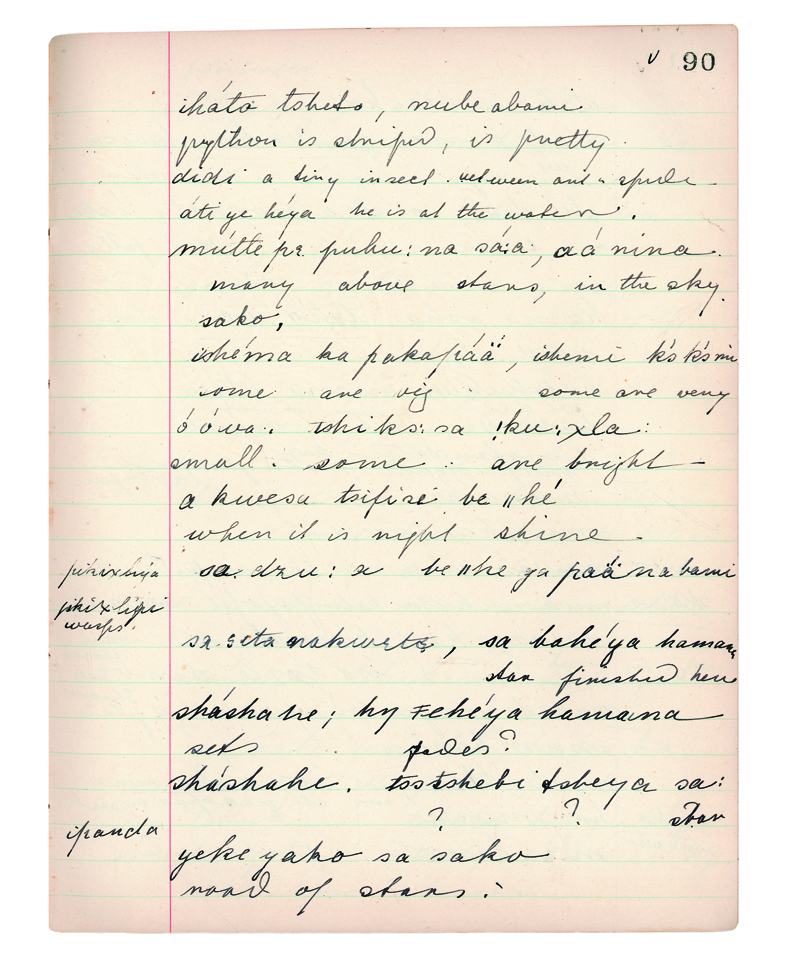 90
iháto tsheto, nube abami
python is striped, is pretty.
didi a tiny insect. between ant & spide
áti ye héya he is at the water.
múttepɛ puhu: na sá:a, aá nina.
many above stars, in the sky.
sako,
ishéma ka pakapáä, ishemi k's k's mi
some are big some are very
ó ówa. tshiks: sa !ku:xla:
small. some are bright –
a kwesa tsifisi be "hé
when it is night shine –
pikixliya sa. dzu: a be "ke ya paä na bami
pikixlipi
wasps.
sa seta nakwete, sa bohéya hamana
star finished here
sháshahe; hy ehéya hamana
sets fades?
sháshahe. tsheya sa:
? ? star
ipanda
yeke yako sa sako
road of stars.